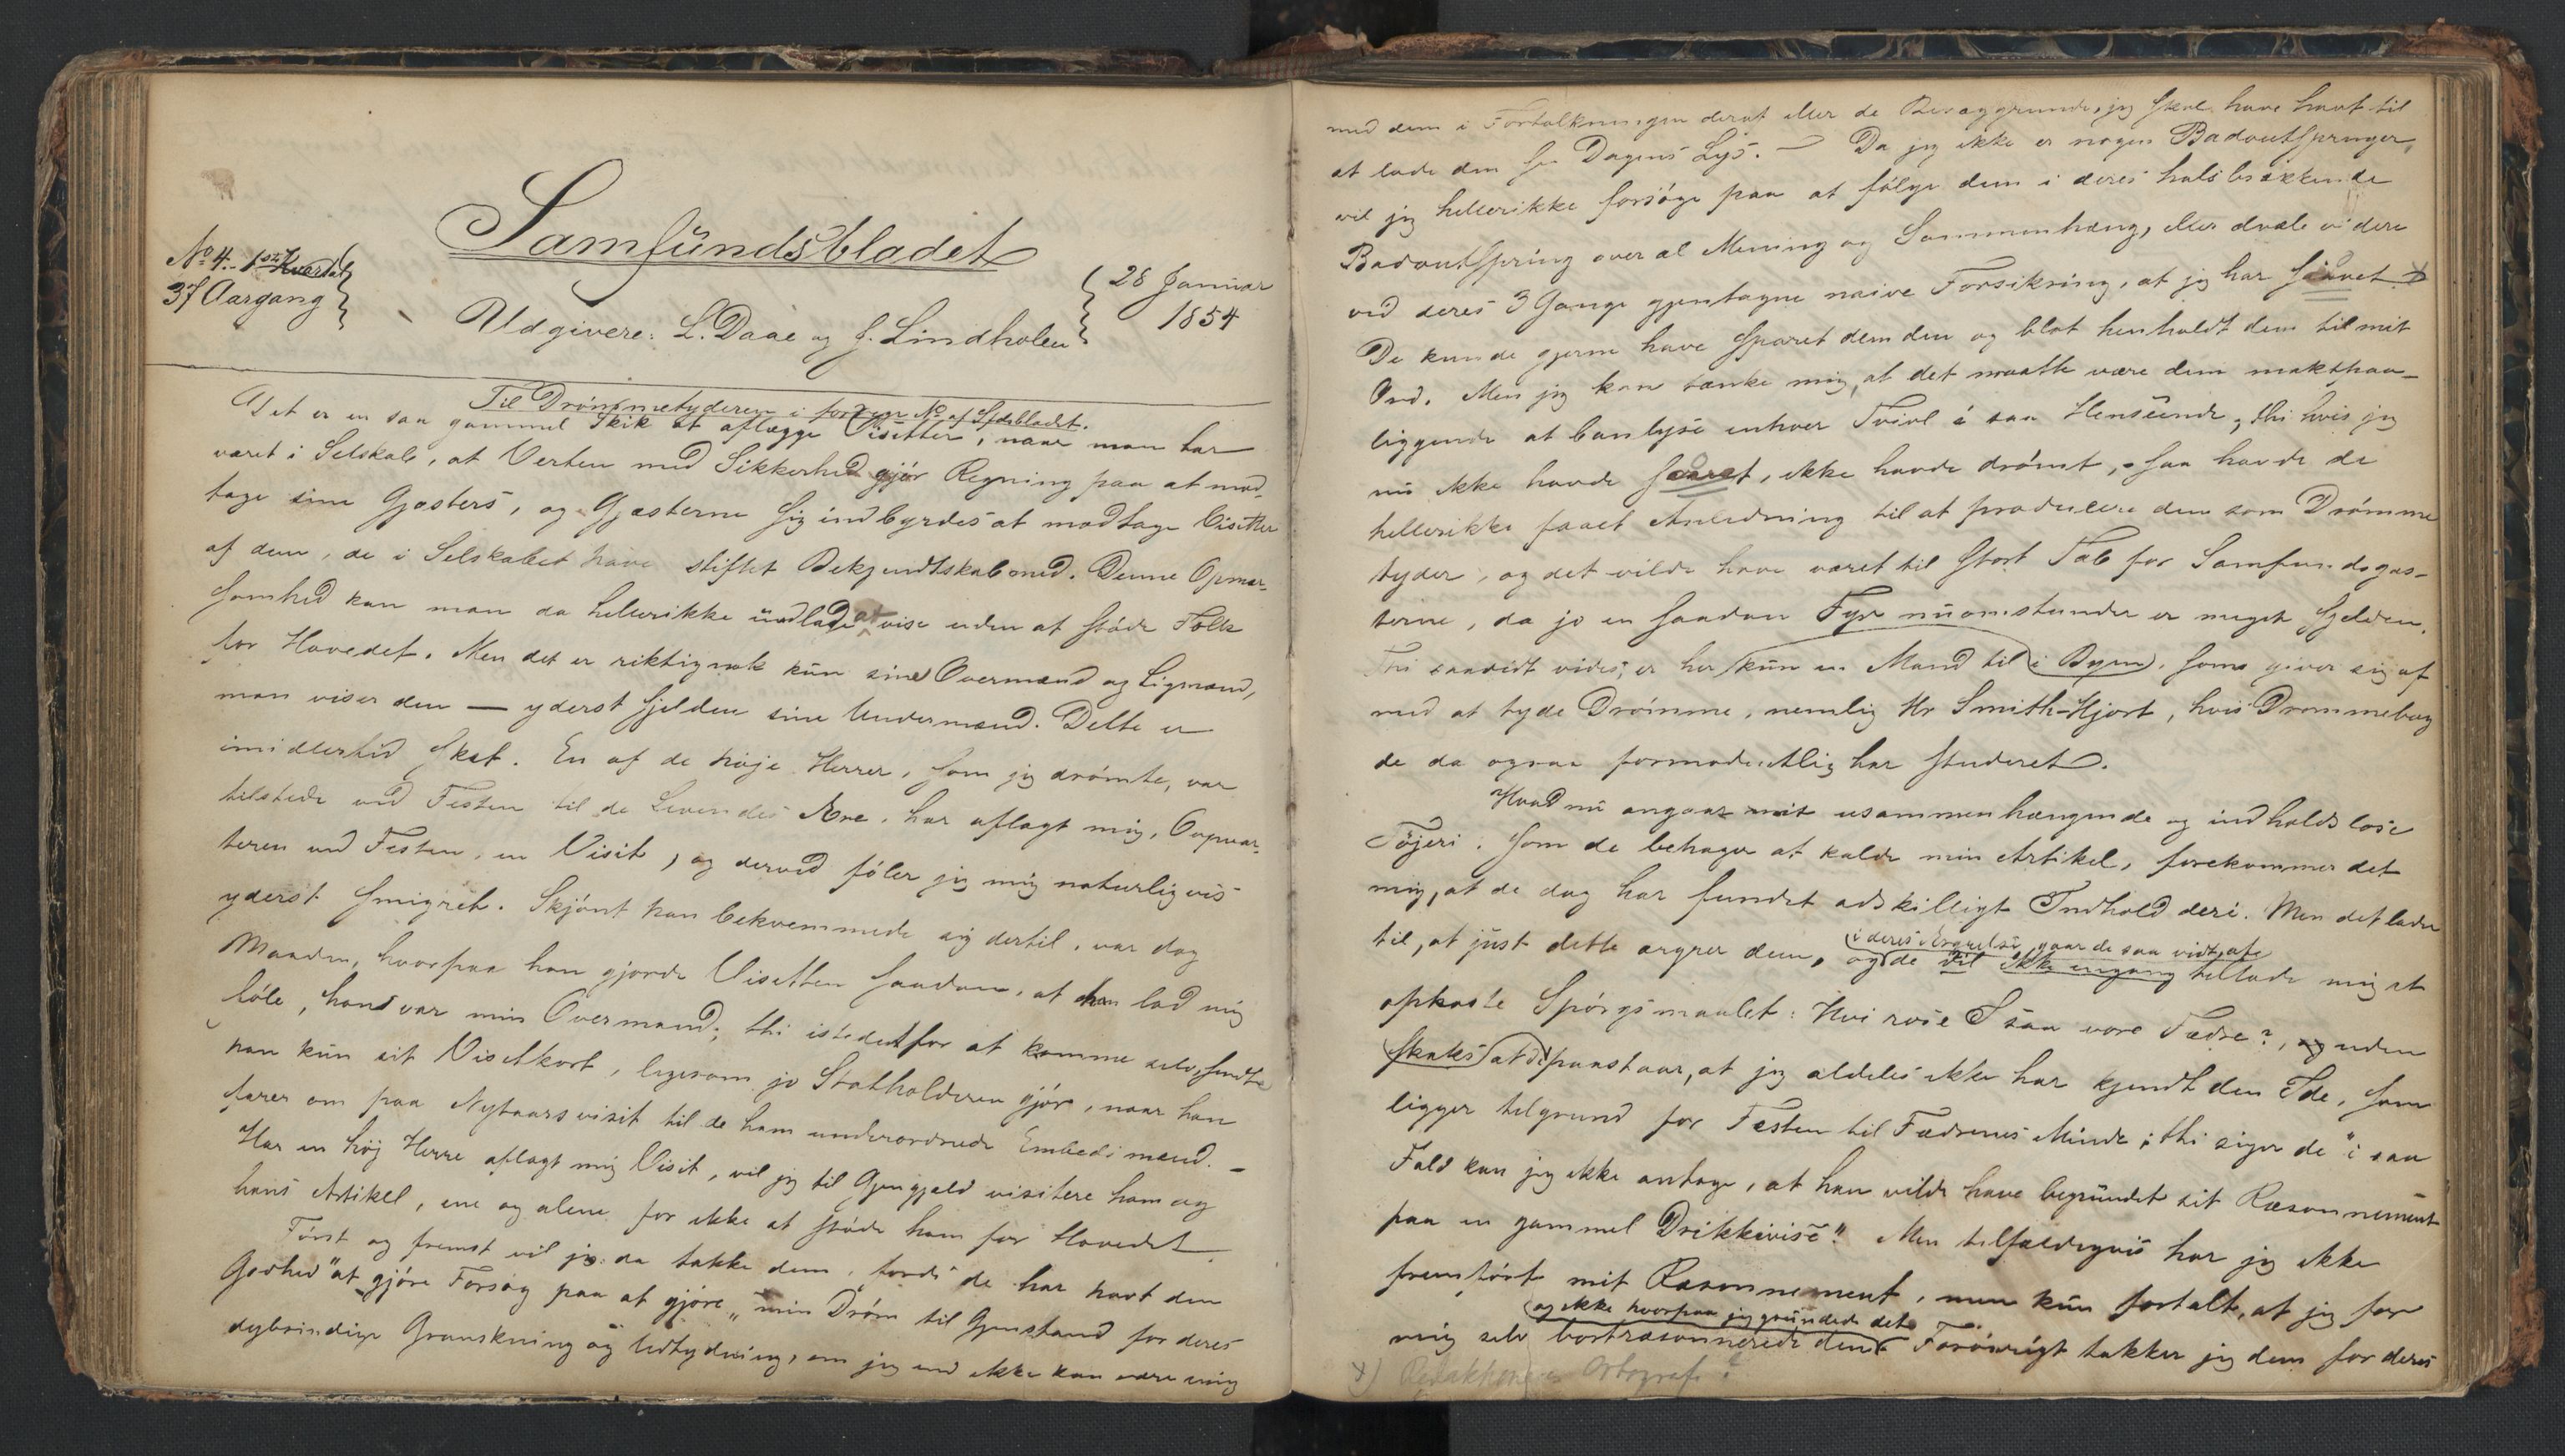 Samfundsbladet
No 4. 1ste Kvartal
37 Aargang
Udgivere: L. Daae og J. Lindholm
28 Januar
1854
Til Drömmetyderen i forrige No af Sfdsbladet.
Det er en saa gammel Skik at aflægge Visitter, naar man har
været i Selskab, at Verten med Sikkerhed gjör Regning paa at mod-
tage sine Gjæsters, og Gjæsterne sig indbyrdes at modtage Visitter
af dem, de i Selskabet have stiftet Bekjendtskab med. Denne Opmær-
somhed kan man da hellerikke undlade at vise uden at støde Folk
for Hovedet. Men det er riktignok kun sine Overmænd og Ligmænd,
man viser den — yderst sjelden sine Undermænd. Dette er
imidlertid sket. En af de høje Herrer, som jeg drömte, var
tilstede ved Festen til de Levendes Ære, har aflagt mig, Opvar-
teren ved Festen, en Visit, og derved föler jeg mig naturligvis
yderst smigret. Skjönt han bekvemmede sig dertil, var dog
Maaden, hvorpaa han gjorde Visitten saadan, at han lod mig
föle, han var min Overmand; thi istedetfor at komme selv, sendte
han kun sit Visitkort, ligesom jo Statholderen gjör, naar han
farer om paa Nytaarsvisit til de ham underordnede Embedsmænd. —
Har en höj Herre aflagt mig Visit, vil jeg til Gjengjæld visitere ham og
hans Artikel, ene og alene for ikke at støde ham for Hovedet.
Först og fremst vil jeg da takke dem, fordi de har havt den
Godhed "at gjöre Forsög paa at gjöre" min Dröm til Gjenstand for deres
dybsindige Granskning og Udtydning, om jeg end ikke kan være enig
med dem i Fortolkningen deraf eller de Bevæggrunde, jeg skal have havt til
at lade den se Dagens Lys. — Da jeg ikke er nogen Badoutspringer,
vil jeg hellerikke forsöge paa at fölge dem i deres halsbrækkende
Badoutspring over al Mening og Sammenhæng, eller dvæle videre
ved deres 3 Gange gjentagne naive Forsikring, at jeg har sovet x
De kunde gjerne have sparet dem den og blot henholdt dem til mit
Ord. Men jeg kan tænke mig, at det maatte være dem maktpaa-
liggende at banlyse enhver Tvivl i saa Henseende, thi hvis jeg
nu ikke havde sovet, ikke havde drömt, saa havde de
hellerikke faaet Anledning til at producere dem som Drömme
tyder, og det vilde have været til stort Tab for Samfundsgjæs-
terne, da jo en saadan Fyr nuomstunder er meget sjelden.
Thi saavidt vides, er her kun en Mand til i Byen, som giver sig af
med at tyde Drömme, nemlig Hr Smith-Hjort, hvis Drömmebog
de da ogsaa formodentlig har studeret.
Hvad nu angaar mit usammenhængende og indholdslöse
Töjeri, som de behager at kalde min Artikel, forekommer det
mig, at de dog har fundet adskilligt Indhold deri. Men det lader
til, at just dette ærgrer dem, og i deres Ærgrelse gaar de saa vidt, at
de vil ikke engang tillade mig at
opkaste Spörgsmaalet: Hvi rose I saa vore Fædre?, og uden
Skaks at de paastaar, at jeg aldeles ikke har kjendt den Ide, som
ligger tilgrund for Festen til Fædrenes Minde; thi siger de "i saa
Fald kan jeg ikke antage, at han vilde have begrundet sit Ræsonnement
paa en gammel Drikkevise". Men tilfældigvis har jeg ikke
fremfört mit Ræsonnement, men kun fortalt, at jeg for
og ikke hvorpaa jeg grundede det
mig selv bortræsonnerede dem. Forövrigt takker jeg dem for deres
x) Redaktionens Ortografi?